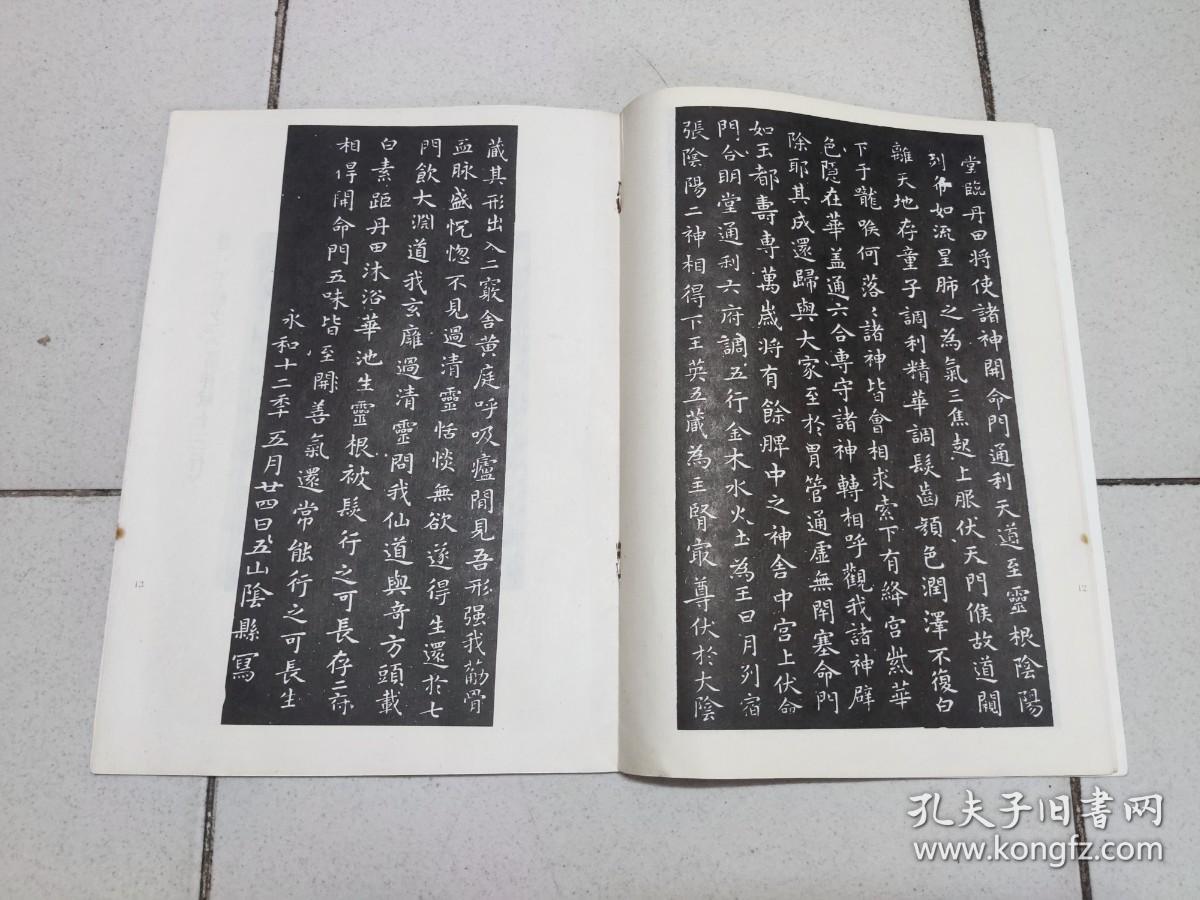 堂臨丹田將使諸神開命門通利天道至靈根陰陽
列布如流星肺之為氣三焦起上服伏天門候故道闚
離天地存童子調利精華調髮齒顏色潤澤不復白
下于嚨喉何落〻諸神皆會相求索下有絳宮紫華
色隱在華蓋通六合專守諸神轉相呼觀我諸神辟
除耶其成還歸與大家至於胃管通虛無閉塞命門
如玉都壽專萬歲將有餘脾中之神舍中宮上伏命
門合明堂通利六府調五行金木水火土為王日月列宿
張陰陽二神相得下玉英五藏為主腎最尊伏於大陰
藏其形出入二竅舍黃庭呼吸廬間見吾形强我筋骨
血脉盛恍惚不見過清靈恬惔無欲遂得生還於七
門飲大淵道我玄廱過清靈問我仙道與奇方頭載
白素距丹田沐浴華池生靈根被髮行之可長存二府
相得開命門五味皆至開善氣還常能行之可長生
永和十二年五月廿四日五山陰縣寫
12
13
孔夫子旧书网
www.kongfz.com